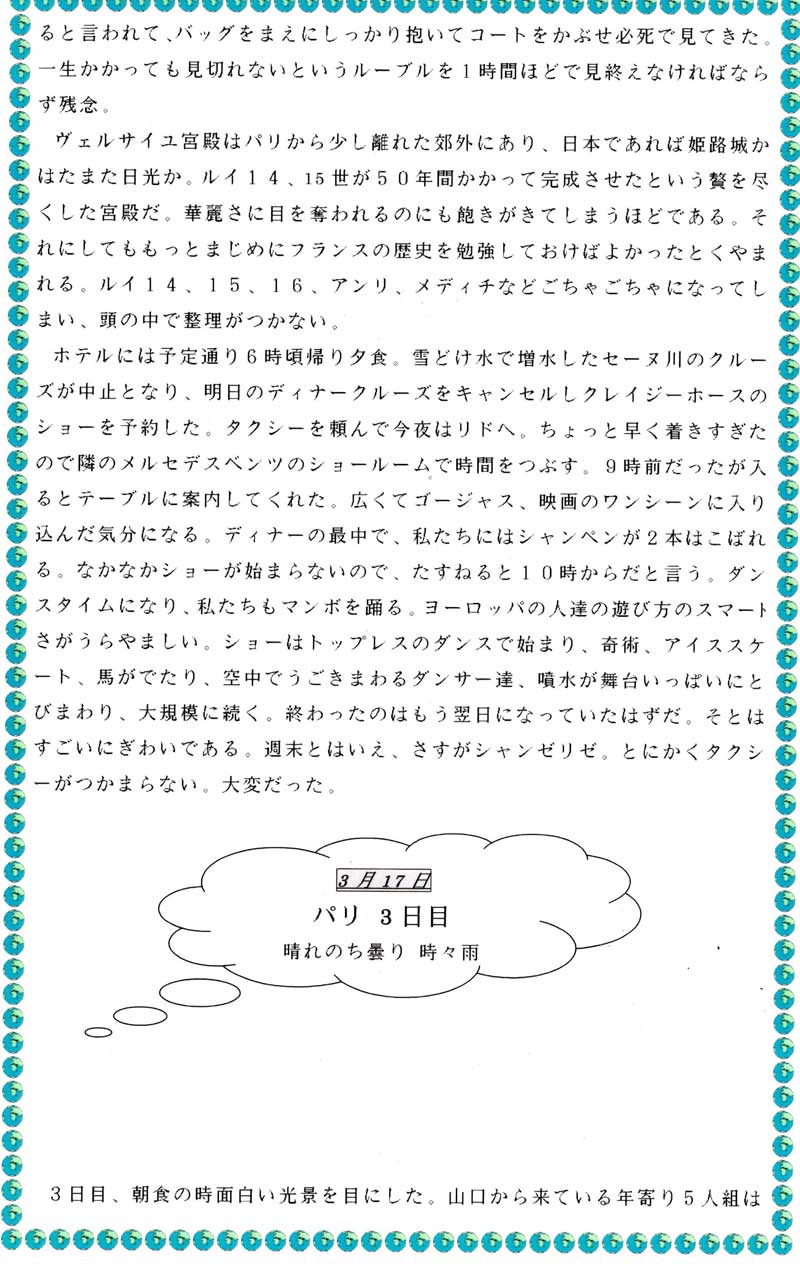 ると言われて、バッグをまえにしっかり抱いてコートをかぶせ必死で見てきた。
一生かかっても見切れないというルーブルを１時間ほどで見終えなければなら
ず残念。
　ヴェルサイユ宮殿はパリから少し離れた郊外にあり、日本であれば姫路城か
はたまた日光か。ルイ１４、15世が５０年間かかって完成させたという贅を尽
くした宮殿だ。華麗さに目を奪われるのにも飽きがきてしまうほどである。そ
れにしてももっとまじめにフランスの歴史を勉強しておけばよかったとくやま
れる。ルイ１４、１５、１６、アンリ、メディチなどごちゃごちゃになってし
まい、頭の中で整理がつかない。
　ホテルには予定通り６時頃帰り夕食。雪どけ水で増水したセーヌ川のクルー
ズが中止となり、明日のディナークルーズをキャンセルしクレイジーホースの
ショーを予約した。タクシーを頼んで今夜はリドへ。ちょっと早く着きすぎた
ので隣のメルセデスベンツのショールームで時間をつぶす。９時前だったが入
るとテーブルに案内してくれた。広くてゴージャス、映画のワンシーンに入り
込んだ気分になる。ディナーの最中で、私たちにはシャンペンが２本はこばれ
る。なかなかショーが始まらないので、たすねると１０時からだと言う。ダン
スタイムになり、私たちもマンボを踊る。ヨーロッパの人達の遊び方のスマート
さがうらやましい。ショーはトップレスのダンスで始まり、奇術、アイススケ
ート、馬がでたり、空中でうごきまわるダンサー達、噴水が舞台いっぱいにと
びまわり、大規模に続く。終わったのはもう翌日になっていたはずだ。そとは
すごいにぎわいである。週末とはいえ、さすがシャンゼリゼ。とにかくタクシ
ーがつかまらない。大変だった。
3月17日
パリ 3日目
晴れのち曇り 時々雨
　３日目、朝食の時面白い光景を目にした。山口から来ている年寄り５人組は